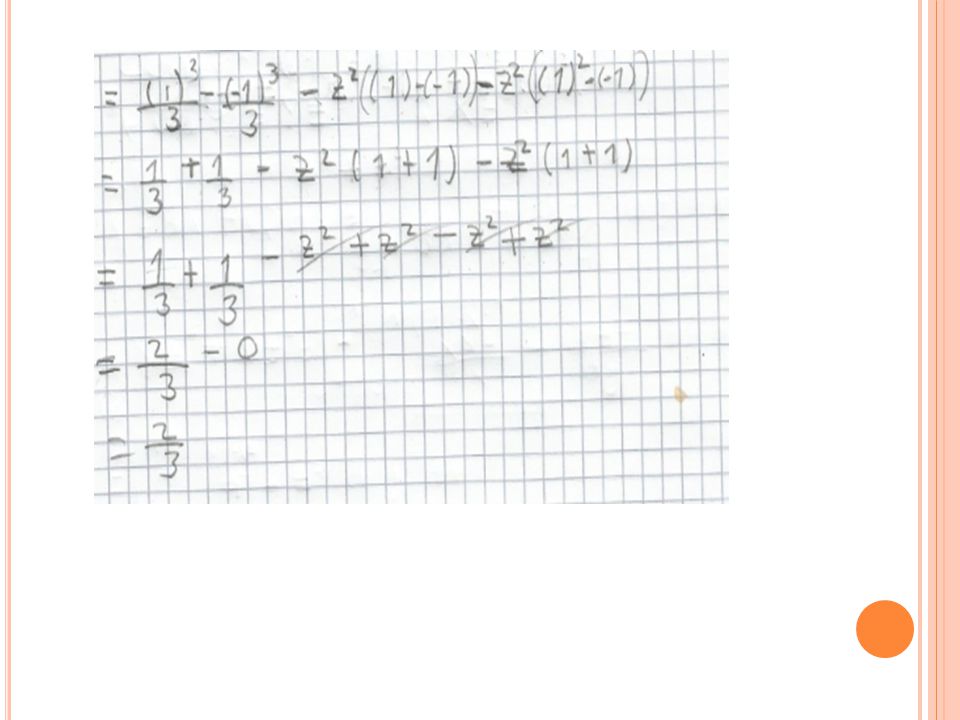 = (1)³/3 - (-1)³/3 - z²((1)-(-1)) - z²((1)²-(-1))
= 1/3 + 1/3 - z²(1+1) - z²(1+1)
= 1/3 + 1/3 - z² + z² - z² + z²
= 2/3 - 0
= 2/3